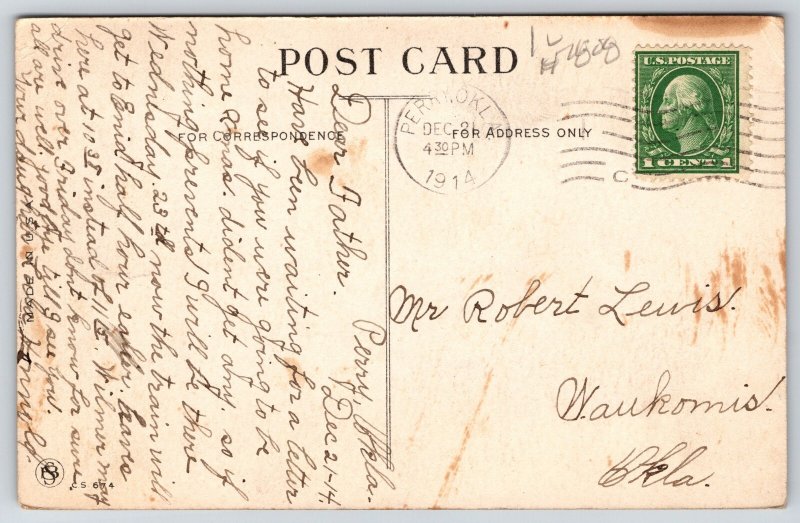 POST CARD
FOR CORRESPONDENCE
FOR ADDRESS ONLY
PERRY, OKLA.
DEC 21
4 30 PM
1914
U.S. POSTAGE
1 CENT 1
Perry, Okla.
Dec 21-14.
Dear Father.
Have been waiting for a later
to see if you were going to be
home Xmas. dident get any. so if
nothing prevents I will be there
Wednesday. 23rd now the train will
get to Enid half hour earlier. leaves
here at 10 35 instead of 11 15. Wilmer may
drive over Friday dont know for sure.
all are well. good bye till I see you.
Your daughter
Mr Robert Lewis.
Waukomis.
Okla.
C.S 674